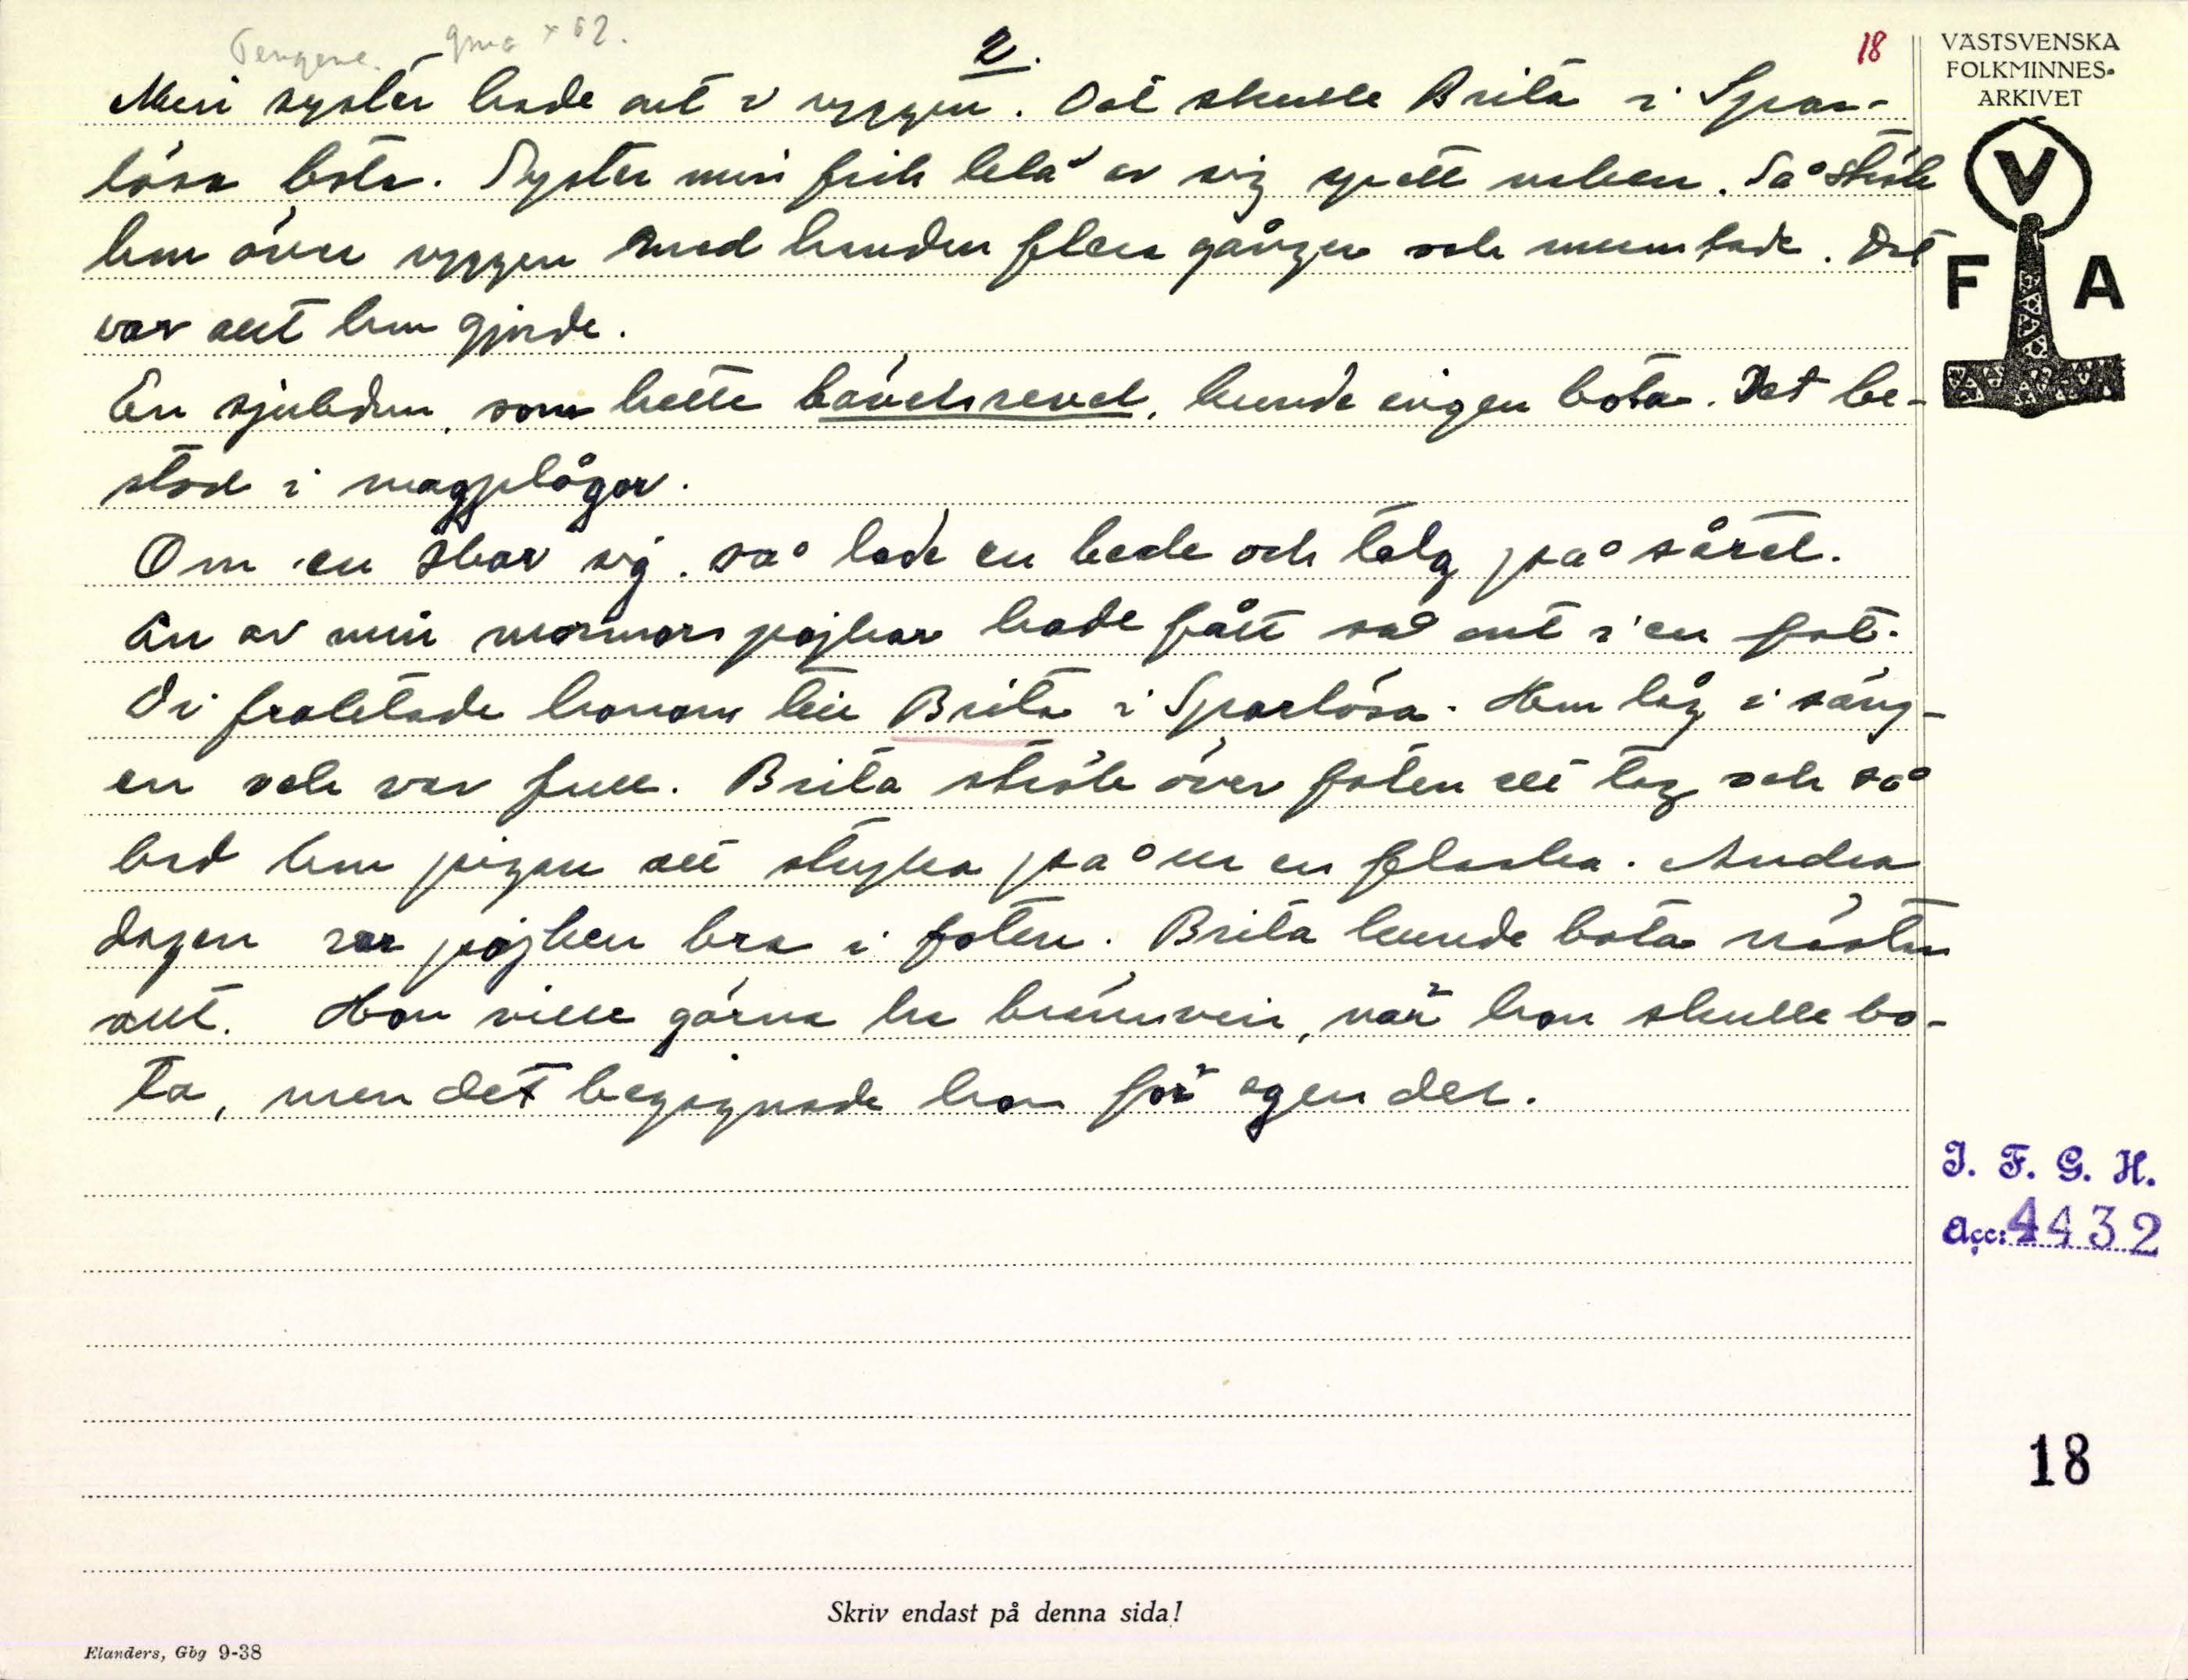 Tengene.
2.
18
Min syster hade ont i ryggen. Det skulle Brita i Spar-
lösa bota. Syster min fick klä av sig spritt naken. Så strök
hon över ryggen med handen flera gånger och mumlade. Det
var allt hon gjorde.
En sjukdom, som hette bävelsrevel, kunde ingen bota. Det be-
stod i magplågor.
Om en skar sig, så lade en kåda och talg på såret.
En av min mormors pojkar hade fått så ont i en fot.
Di fraktade honom till Brita i Sparlösa. Hon låg i säng-
en och var full. Brita strök över foten ett tag och så
bad hon pigan att stryka på ur en flaska. Andra
dagen var pojken bra i foten. Brita kunde bota nästan
allt. Hon ville gärna ha brännvin, när hon skulle bo-
ta, men det begagnade hon för egen del.
VÄSTSVENSKA
FOLKMINNES-
ARKIVET
V
F A
I. F. G. H.
Acc: 4432
18
Skriv endast på denna sida!
Elanders, Gbg 9-38